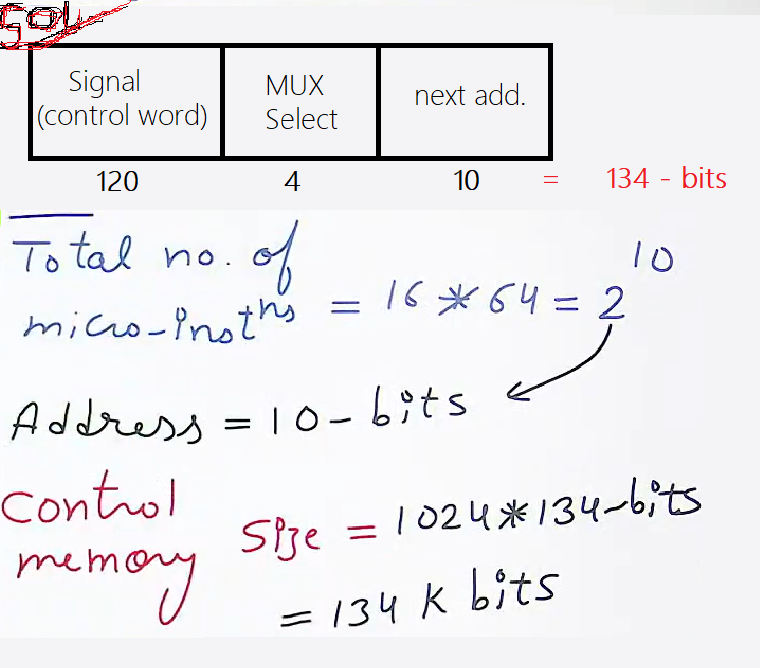 Sol
Signal MUX next add.
(control word) Select
120 4 10 = 134 - bits
Total no. of
micro-instns = 16 * 64 = 2^10
Address = 10-bits
Control memory Size = 1024 * 134-bits
= 134 K bits